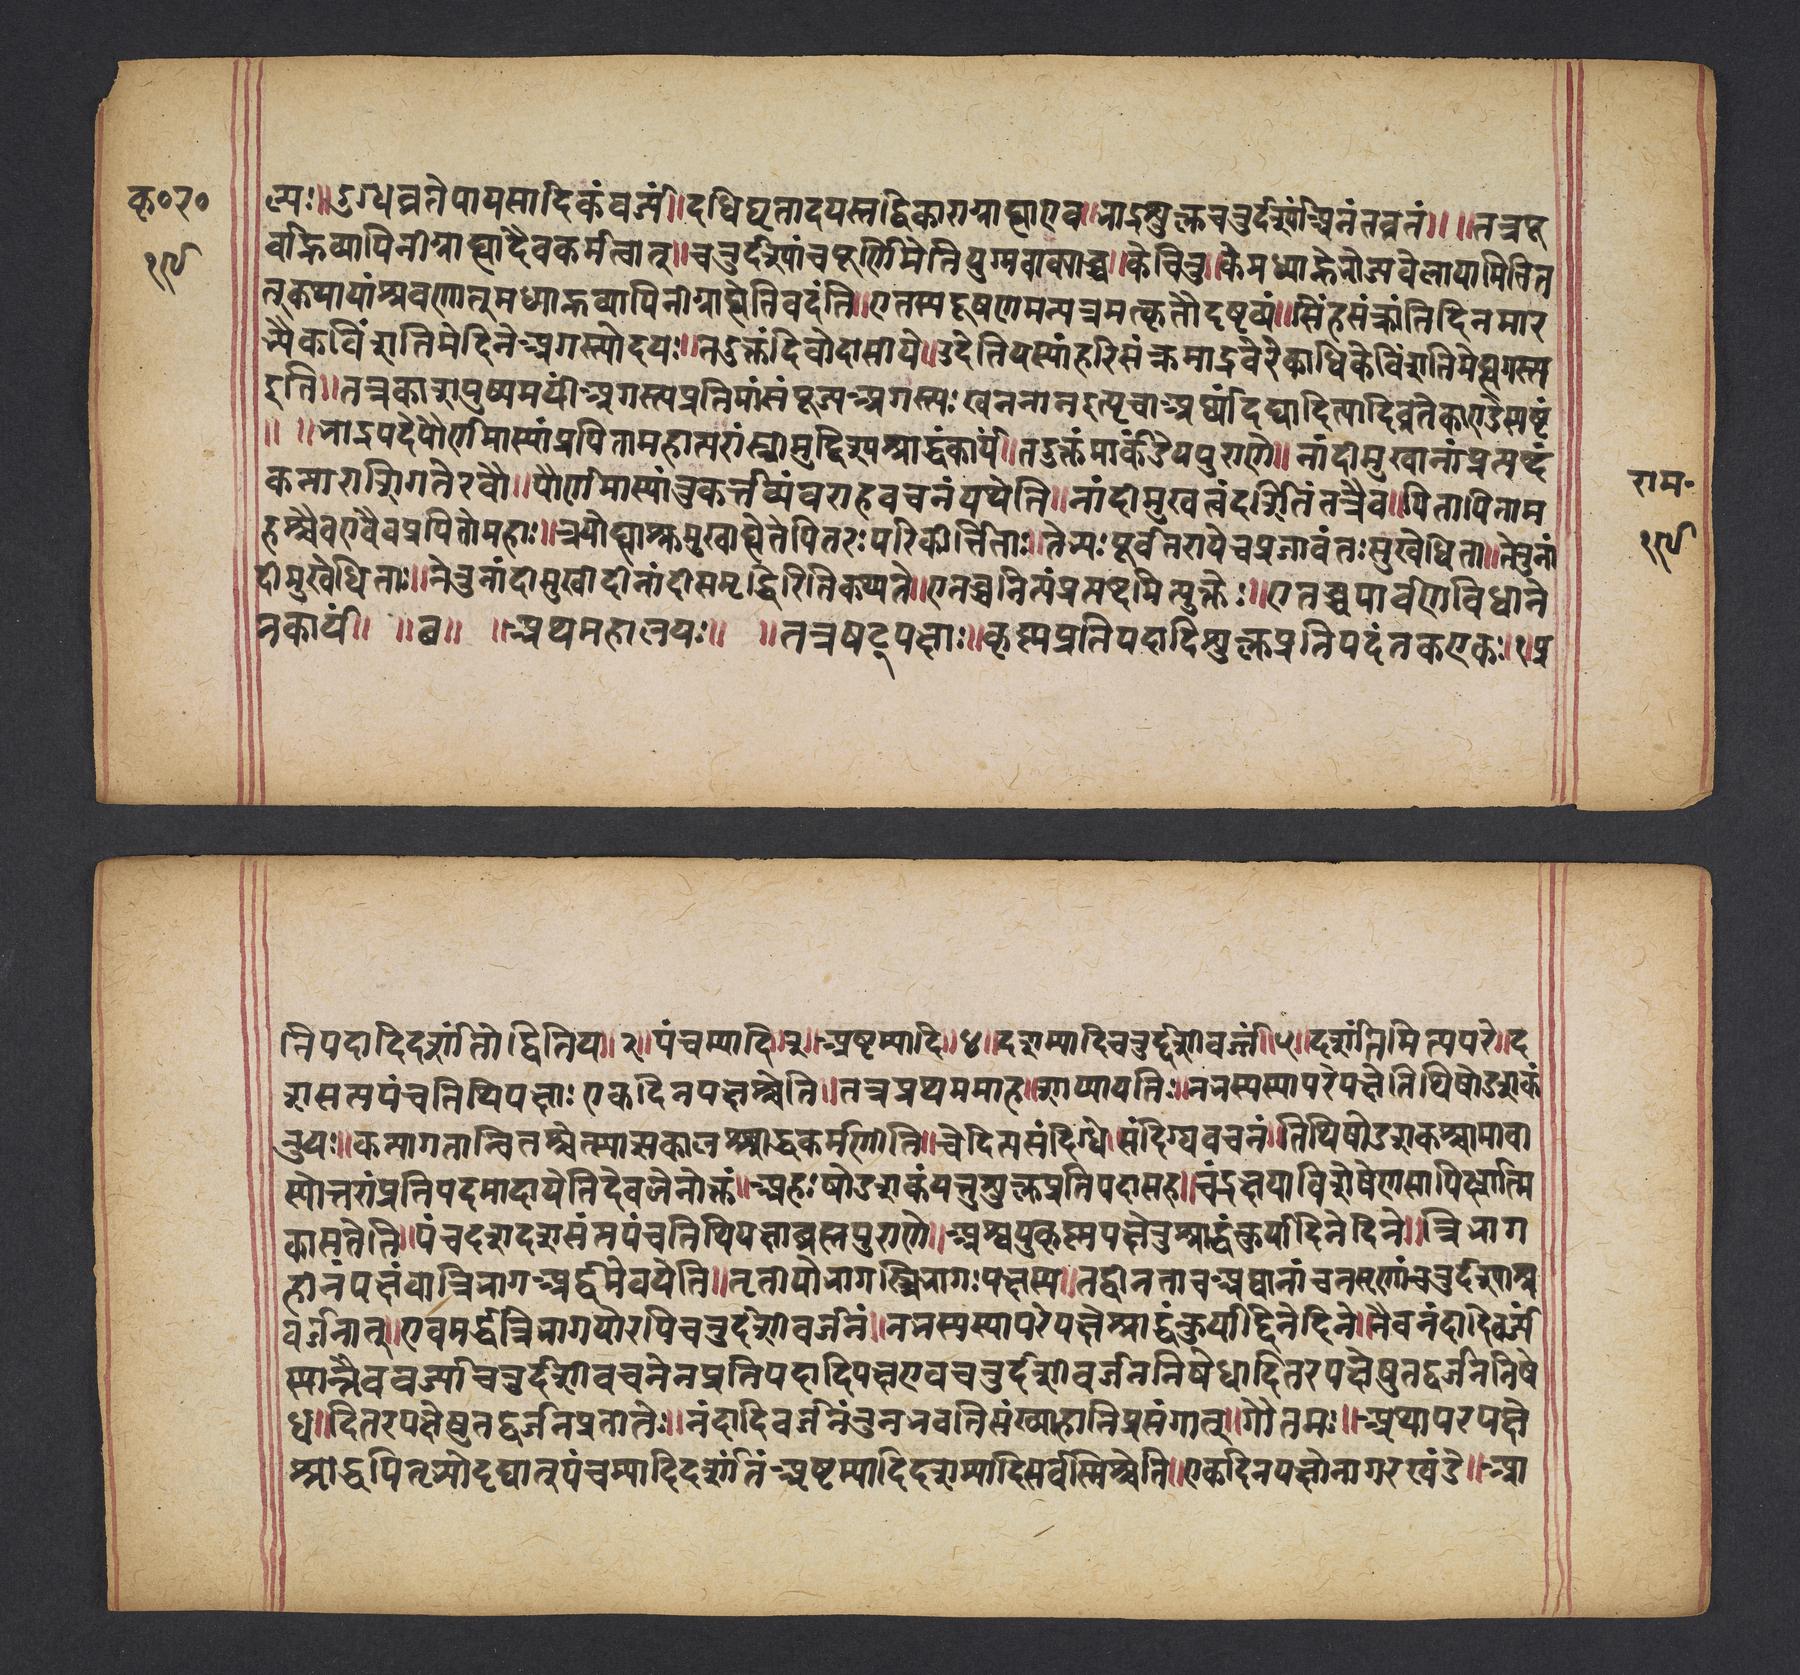 कृ०र०
१९
त्यः॥दुग्धव्रतेपायसादिकंवर्ज्यं॥दधिघृतादयस्तद्विकाराग्राह्याएव॥भाद्रशुक्लचतुर्दश्यांअनंतव्रतं॥ ॥तत्रपू
र्वाह्निव्यापिनीग्राह्यादैवकर्मत्वात्॥चतुर्दश्यांचपूर्णिमेतियुग्मवाक्याच्च॥केचित्तु॥कैमध्याह्नेभोज्यवेलायामितित
त्कथायांश्रवणात्तुमध्याह्नव्यापिनीग्राह्येतिवदंति॥एतस्यदूषणमन्यत्रमत्कृतौदृष्टव्यं॥सिंहसंक्रांतिदिनमार
भ्यैकविंशतिमेदिनेअगस्त्योदयः॥तदुक्तंदिवोदासीये॥उदेतियस्यांहरिसंक्रमाद्रवेरेकाधिकेविंशतिमेह्यगस्त्य
इति॥तत्रकाशपुष्पमयींअगस्त्यप्रतिमांसंपूज्यअगस्त्यःखनमानइत्यृचाअर्घ्यंदद्यादित्यादिव्रतेकाण्डेस्पष्टं
॥ ॥भाद्रपदेपौर्णमास्यांप्रपितामहात्परांस्त्रीनुद्दिश्यश्राद्धंकार्यं॥तदुक्तंमार्कंडेयपुराणे॥नांदीमुखानांप्रत्यब्दं
कन्याराशिगतेरवौ॥पौर्णमास्यांतुकर्त्तव्यंवराहवचनंयथेति॥नांदीमुखत्वंदर्शितंतत्रैव॥पितापिताम
हश्चैवतथैवप्रपितामहाः॥त्रयोह्यश्रुमुखाह्येतेपितरःपरिकीर्त्तिताः॥तेभ्यःपूर्वतरायेचप्रजावंतःसुखैधिता॥तेतुनां
दीमुखैधिताः॥तेतुनांदीमुखीदीनांदीसमृद्धिरितिकथ्यते॥एतच्चनित्यंप्रत्यब्दमित्युक्तेः॥एतच्चपार्वणविधाने
नकार्यं॥ ॥ब॥ ॥अथमहालयः॥ ॥तत्रषट्पक्षाः॥कृष्णप्रतिपदादिशुक्लप्रतिपदंतकएकः॥१॥प्र
राम-
१९
तिपदादिदर्शांतोद्वितियः॥२॥पंचम्यादि॥३॥अष्टम्यादि॥४॥दशम्यादिचतुर्दशीवर्ज्जं॥५॥दर्शांतमित्यपरे॥द
शसत्यपंचतिथिपक्षाःएकदिनपक्षश्चेति॥तत्रप्रथममाह॥शाठ्यायनिः॥नभस्यस्यापरेपक्षेतिथिषोडशकं
तुयः॥कन्यागतान्वितश्चेत्स्यात्सकालश्राद्धकर्मणीति॥चेदित्यसंदिग्धेसंदिग्धवचनं॥तिथिषोडशकश्चामावा
स्योत्तरांप्रतिपदमादायेतिदेवजेनोक्तं॥अहःषोडशकंयत्तुशुक्लप्रतिपदासह॥चंद्रक्षयाविशेषेणसापिदर्शात्मि
कास्मृतेति॥पंचदशदशसंमपंचतिथिपक्षाब्रह्मपुराणे॥अश्वयुकृष्णपक्षेतुश्राद्धंकुर्यादिनेदिने॥त्रिभाग
हीनंपक्षंवात्रिभागंअर्द्धमेववेति॥तृतीयोभागस्त्रिभागःपक्षस्य॥तद्धीनताचअद्यानांचतसृणांचतुर्दश्याश्च
वर्जनात्॥एवमर्द्धत्रिभागयोरपिचतुर्दशीवर्जनं॥नभस्यस्यापरेपक्षेश्राद्धंकुर्याद्दिनेदिने॥नैवनंदादिवर्ज्यं
स्यान्नैववर्ज्याचचतुर्दशीवचनेनप्रतिपदादिपक्षएवचचतुर्दशीवर्जननिषेधादितरपक्षेषुतद्वर्जननिषे
ध॥दितरपक्षेषुतद्वर्जनप्रतीतेः॥नंदादिवर्जनंतुनभवतिसंख्याहानिप्रसंगात्॥गौतमः॥अथापरपक्षे
श्राद्धंपितृभ्योदद्यात्पंचम्यादिदर्शांतंअष्टम्यादिदशम्यादिसर्वस्मिंश्चेति॥एकदिनपक्षोनागरखंडे॥आ